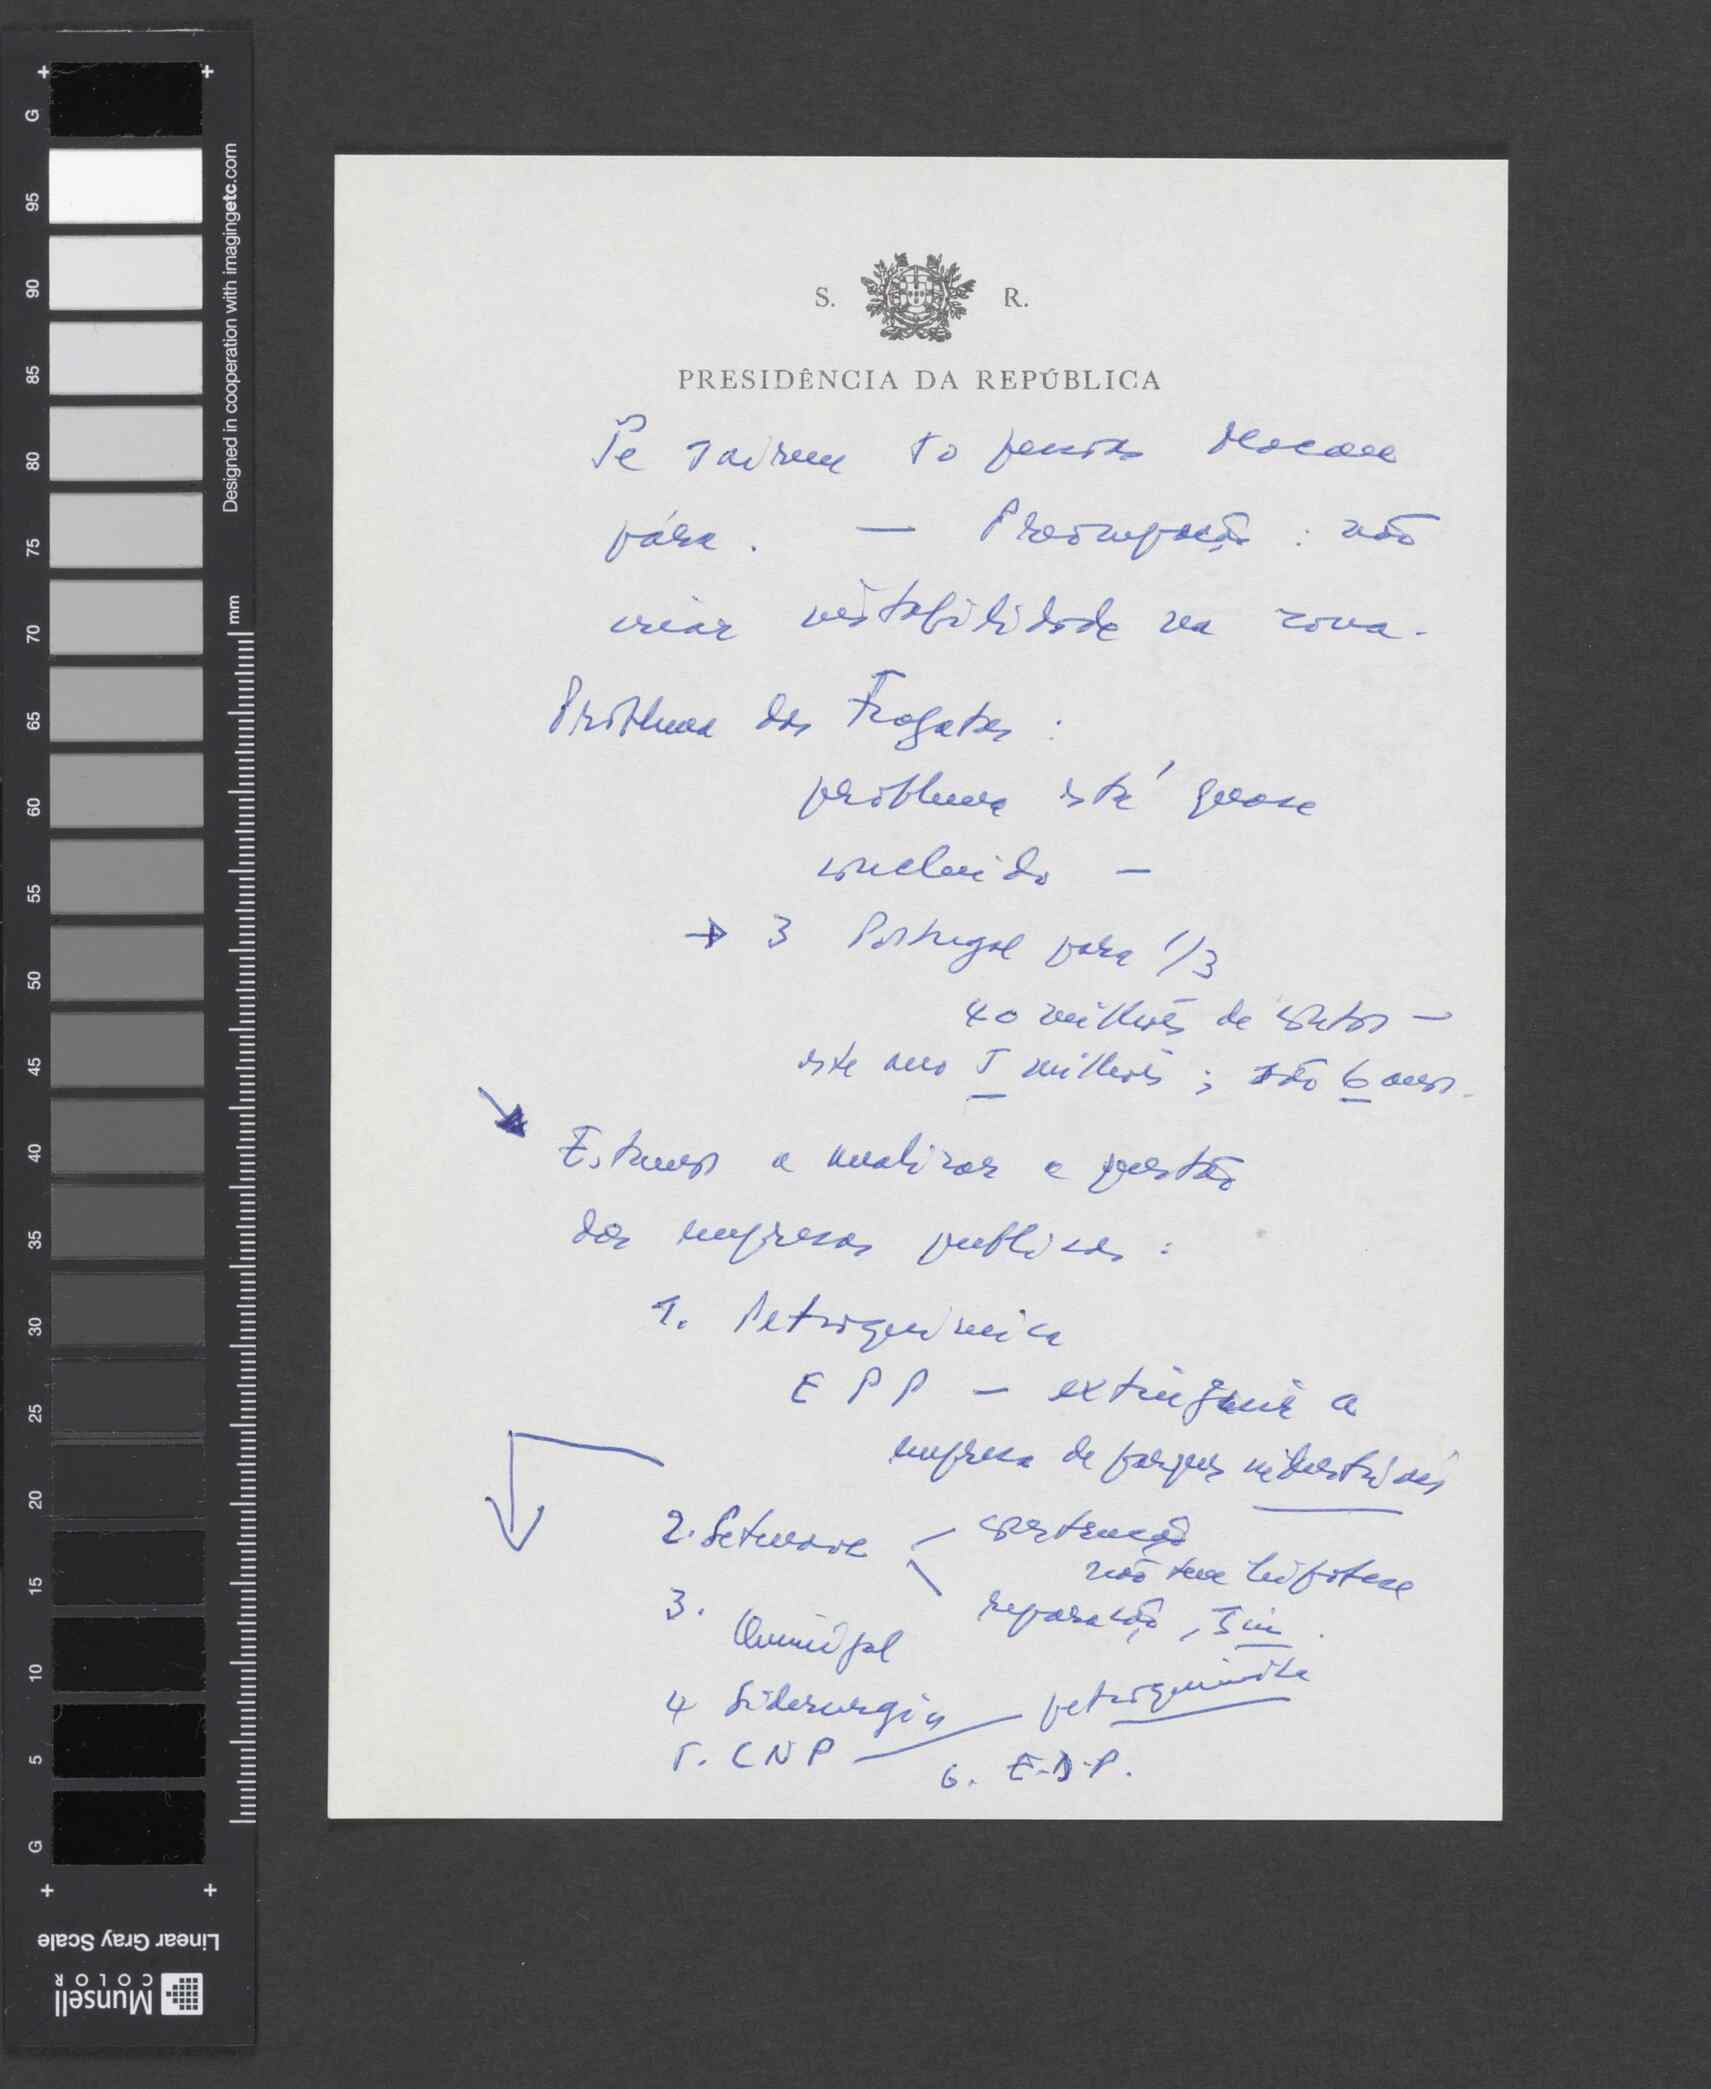 S. R.
PRESIDÊNCIA DA REPÚBLICA
Se sairem 50 pessoas Macau
pára. — Preocupação : não
criar instabilidade na zona.
Problema das Fragatas :
problema está quase
concluido —
→ 3 Portugal paga 1/3
40 milhões de contos —
este ano 5 milhões ; são 6 anos.
Estamos a analizar a questão
das empresas publicas :
1. Petroquimica
E P P — extinguir a
empresa de parques industriais
2. Setenave — construção
não tem hipotese
reparação, sim.
3. Quimigal
4 Siderurgia
petroquimica
5. C N P —
6. E.D.P.
G 95 90 85 80 75 70 65 60 55 50 45 40 35 30 25 20 15 10 5 G
mm
Designed in cooperation with imagingetc.com
Linear Gray Scale
Munsell
COLOR